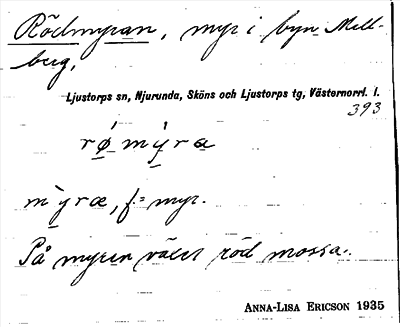 Rödmyran, myr i byn Mell-
berg,
Ljustorps sn, Njurunda, Sköns och Ljustorps tg, Västernorrl. l.
393
rǿmýra
mỳræ, f. = myr.
På myren växer röd mossa.
ANNA-LISA ERICSON 1935